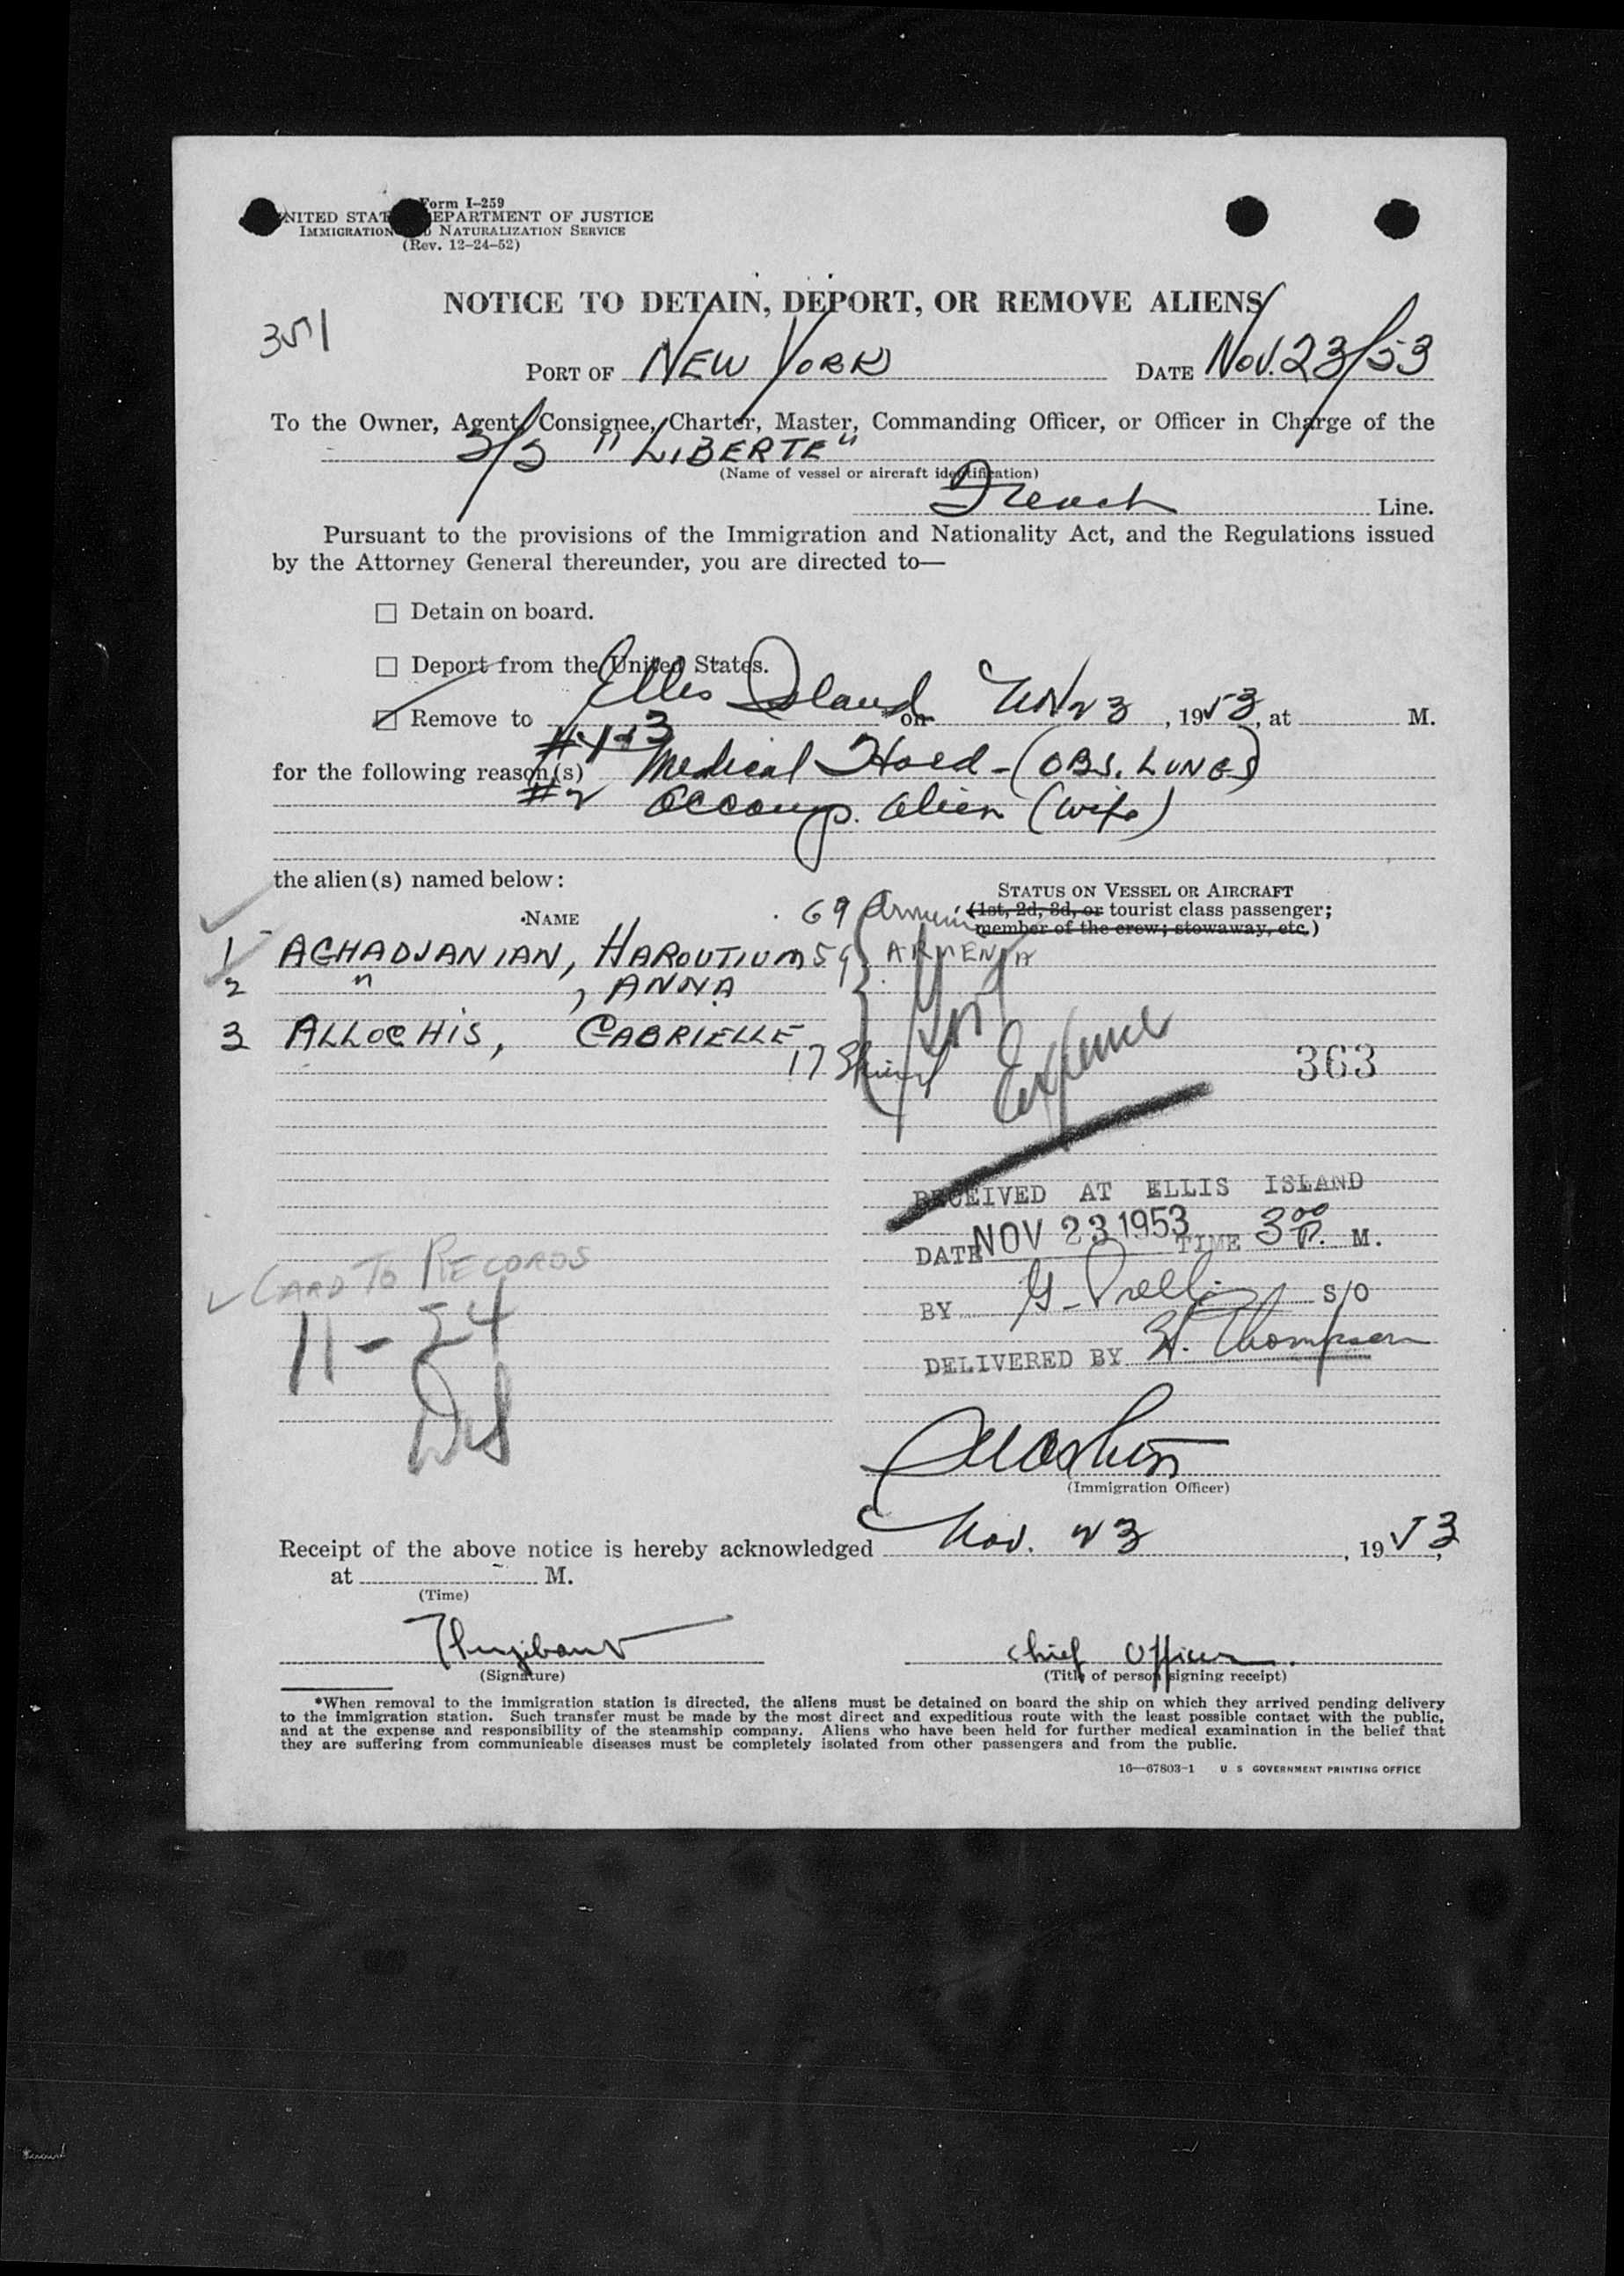 Form I-259
UNITED STATES DEPARTMENT OF JUSTICE
IMMIGRATION AND NATURALIZATION SERVICE
(Rev. 12-24-52)
NOTICE TO DETAIN, DEPORT, OR REMOVE ALIENS
351
PORT OF NEW YORK DATE NOV. 23/53
To the Owner, Agent, Consignee, Charter, Master, Commanding Officer, or Officer in Charge of the
S/S "LIBERTE"
(Name of vessel or aircraft identification)
French Line.
Pursuant to the provisions of the Immigration and Nationality Act, and the Regulations issued
by the Attorney General thereunder, you are directed to—
☐ Detain on board.
☐ Deport from the United States.
☑ Remove to Ellis Island on Nov 23, 1953, at M.
#1-3
for the following reason(s) Medical Hold - (OBS. LUNGS)
#2 Accomp. Alien (wife)
the alien(s) named below:
STATUS ON VESSEL OR AIRCRAFT
NAME 69 (1st, 2d, 3d, or tourist class passenger;
member of the crew; stowaway, etc.)
1 AGHADJANIAN, HAROUTIUM 59 ARMENIA
2 " , ANNA
3 ALLOCHIS, GABRIELLE
17
Expense
363
RECEIVED AT ELLIS ISLAND
DATE NOV 23 1953 TIME 3 00 P. M.
BY S/O
DELIVERED BY H. Thompson
CARD TO RECORDS
11-24
(Immigration Officer)
Receipt of the above notice is hereby acknowledged Nov. 23, 1953,
at M.
(Time)
Chief Officer.
(Signature) (Title of person signing receipt)
*When removal to the immigration station is directed, the aliens must be detained on board the ship on which they arrived pending delivery
to the immigration station. Such transfer must be made by the most direct and expeditious route with the least possible contact with the public,
and at the expense and responsibility of the steamship company. Aliens who have been held for further medical examination in the belief that
they are suffering from communicable diseases must be completely isolated from other passengers and from the public.
16—67803-1 U S GOVERNMENT PRINTING OFFICE